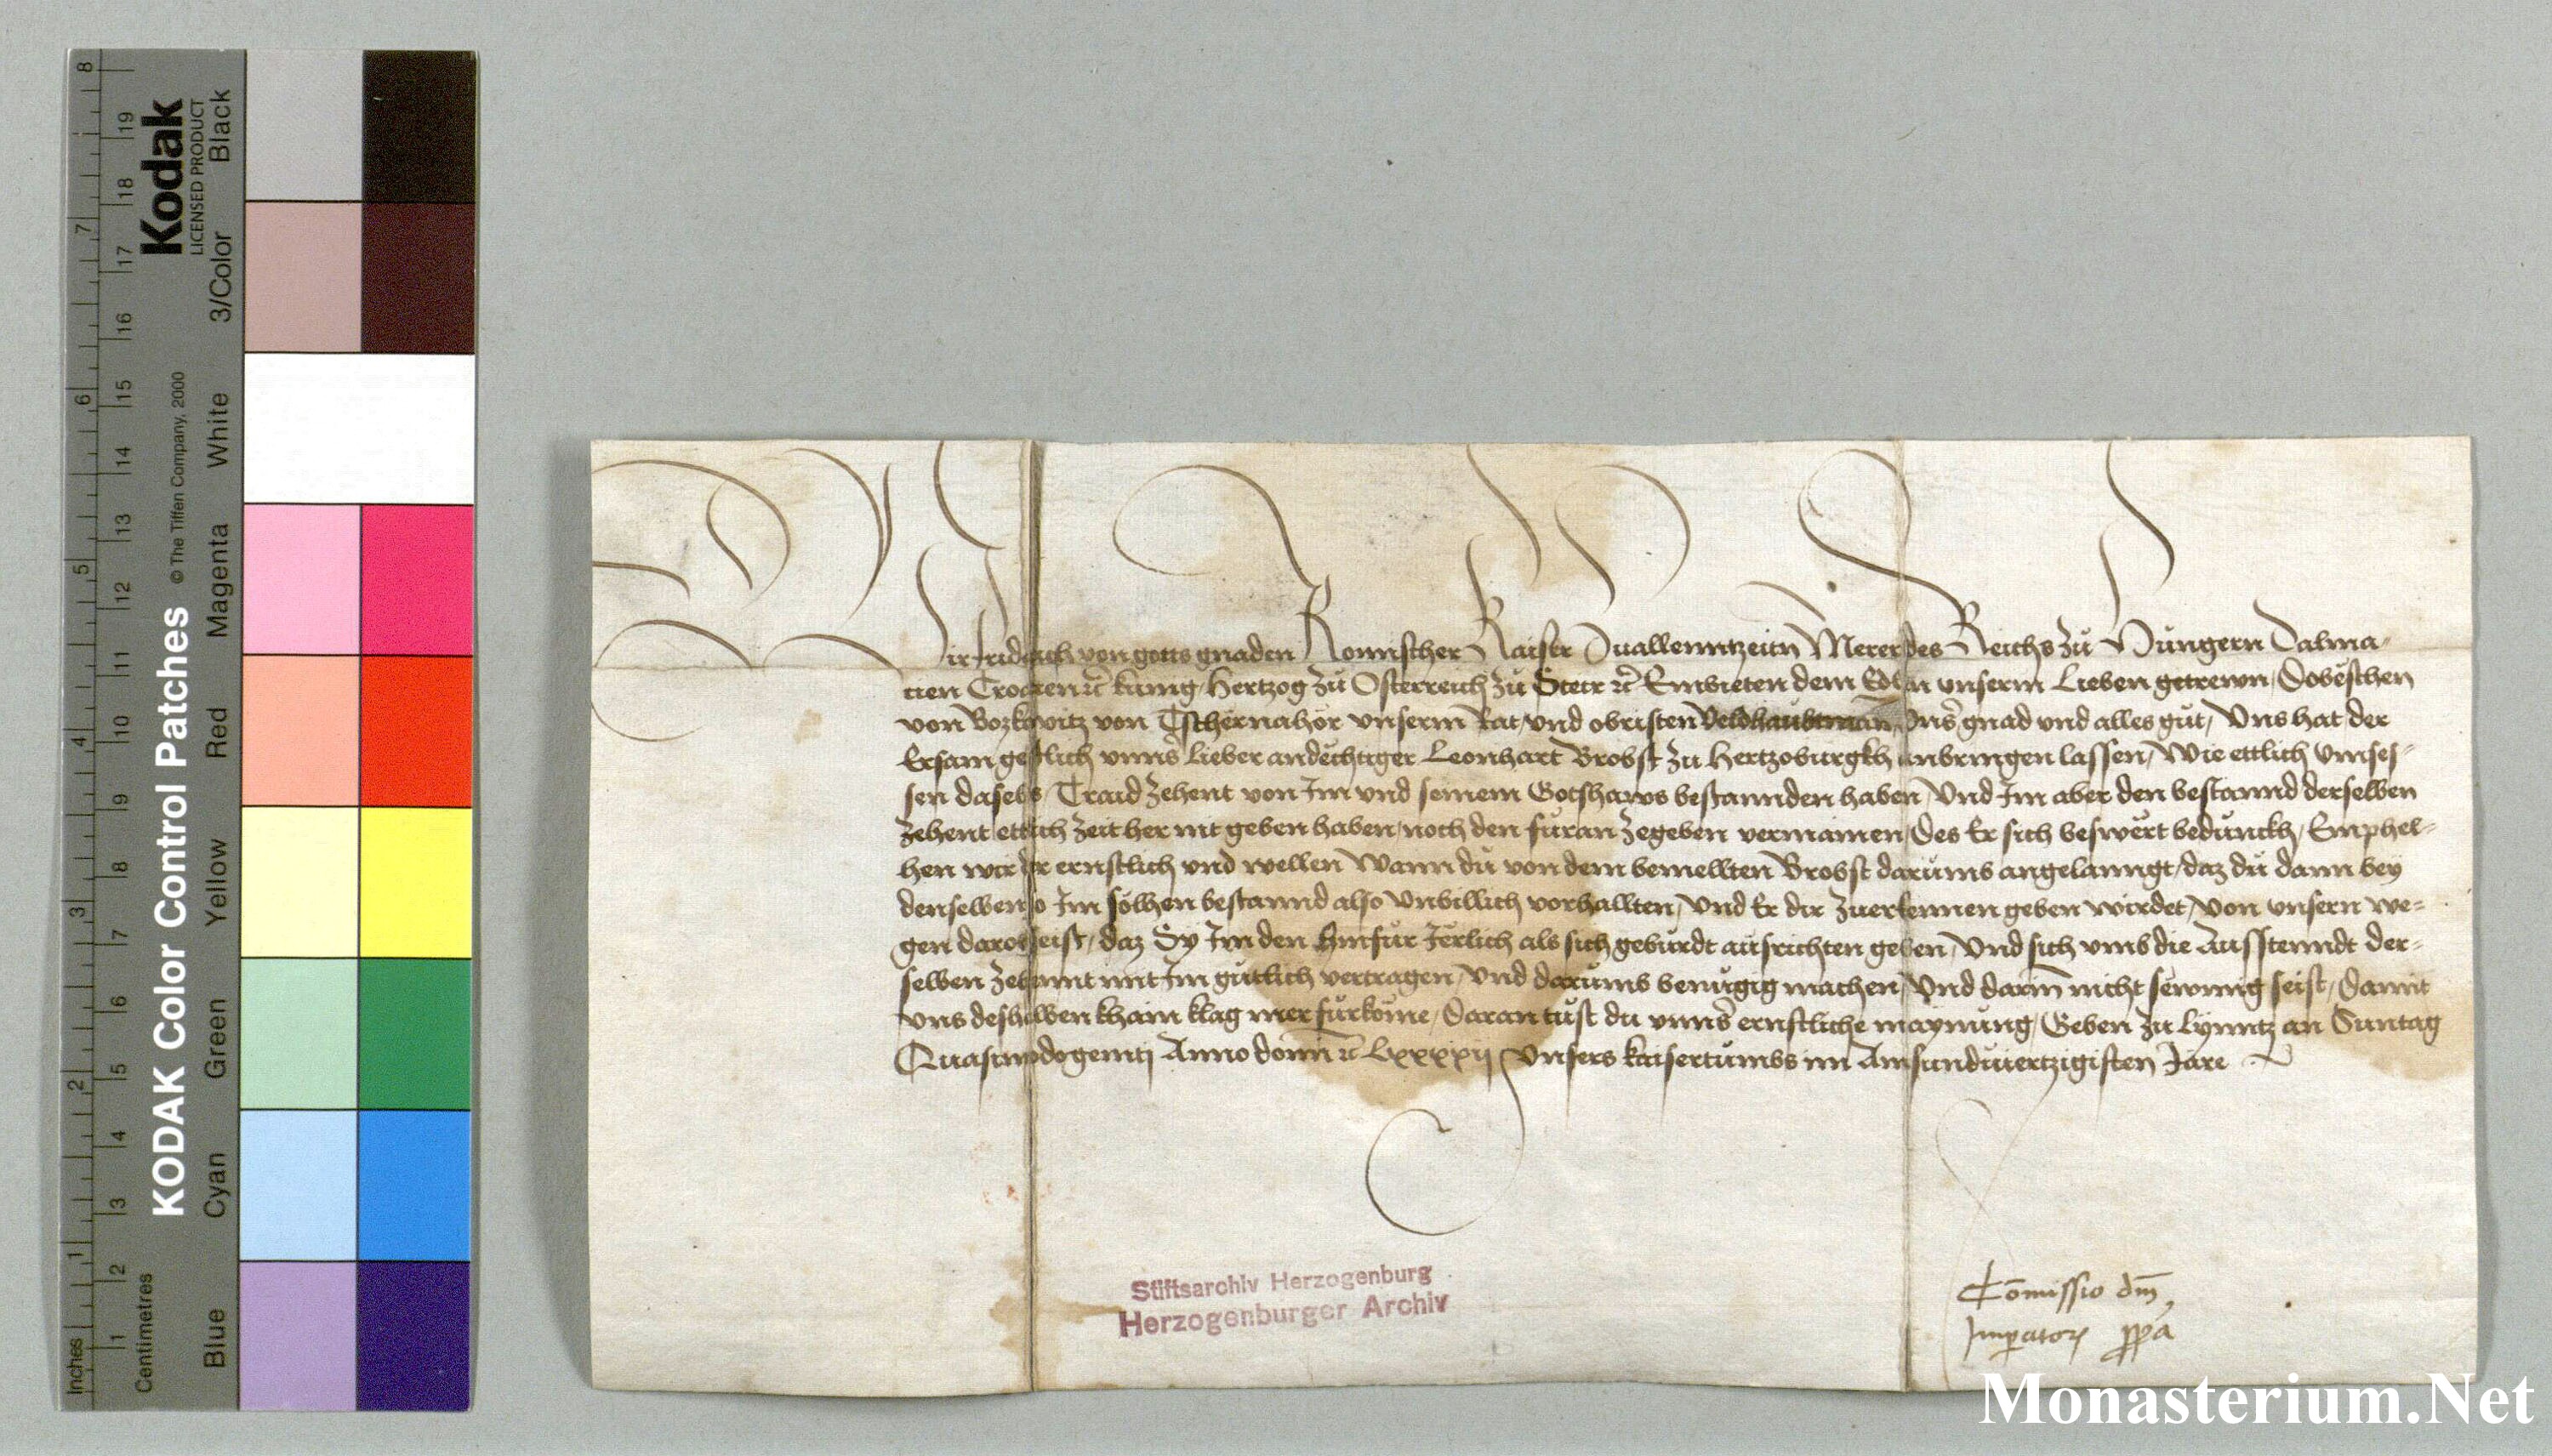 Wir Fridrich von gotts gnaden Romischer Kaiser Zuallenntzeitn Merer des Reichs zů Hůngern Dalma-
cien Croacien ꝛc̃ kunig Hertzog zů Osterreich zů Steir ꝛc̃ Embieten dem Edlen unserm Lieben getrewn Dobeschen
von Bozkowitz von Tschernahor unserm Rat und obristen Veldhaubtman Unns̃ gnad und alles gůt, Uns hat der
Ersam geistlich unns̃ lieber andechtiger Leonhart Brobst zu Hertzoburgkh anbringen lassen, Wie ettlich Umses-
sen daselbs Traid Zehent von Im und seinem Gotshaws bestannden haben, Und Im aber den bestannd derselben
Zehent ettlich Zeit her nit geben haben, noch den fůran Zegeben vermainen, Des Er sich beswert bedůnckh, Emphel-
hen wir dir ernstlich und wellen Wann dů von dem bemellten Brobst darůmb angelanngt, daz dů dann bey
denselben so Im solhen bestannd also Unbillich vorhallten, Und Er dir zuerkennen geben wirdet, von unsern we-
gen darob seist, daz Sy Im den Hinfůr Jerlich als sich gebůrdt ausrichten geben, Und sich umb die Ausstenndt der-
selben Zehennt mit Im gůtlich vertragen, Und darůmb benůgig machen, Und darin̄ nicht sewmig seist, Damit
Uns deshalben kham klag mer fůrkome, Daran tůst du unns̃ ernstliche maynůng, Geben zu Lynntz an Suntag
Quasimodogeniti Anno domī ꝛc̃ Lxxxxij Unsers Kaisertumbs im Ainsundviertzigisten Jare
Stiftsarchiv Herzogenburg
Herzogenburger Archiv
Cōmissio dm̄
Imperatorꝭ ppa
Monasterium.Net
KODAK Color Control Patches
© The Tiffen Company, 2000
Kodak
LICENSED PRODUCT
Inches
Centimetres
Blue
Cyan
Green
Yellow
Red
Magenta
White
3/Color
Black
1
2
3
4
5
6
7
8
1
2
3
4
5
6
7
8
9
10
11
12
13
14
15
16
17
18
19